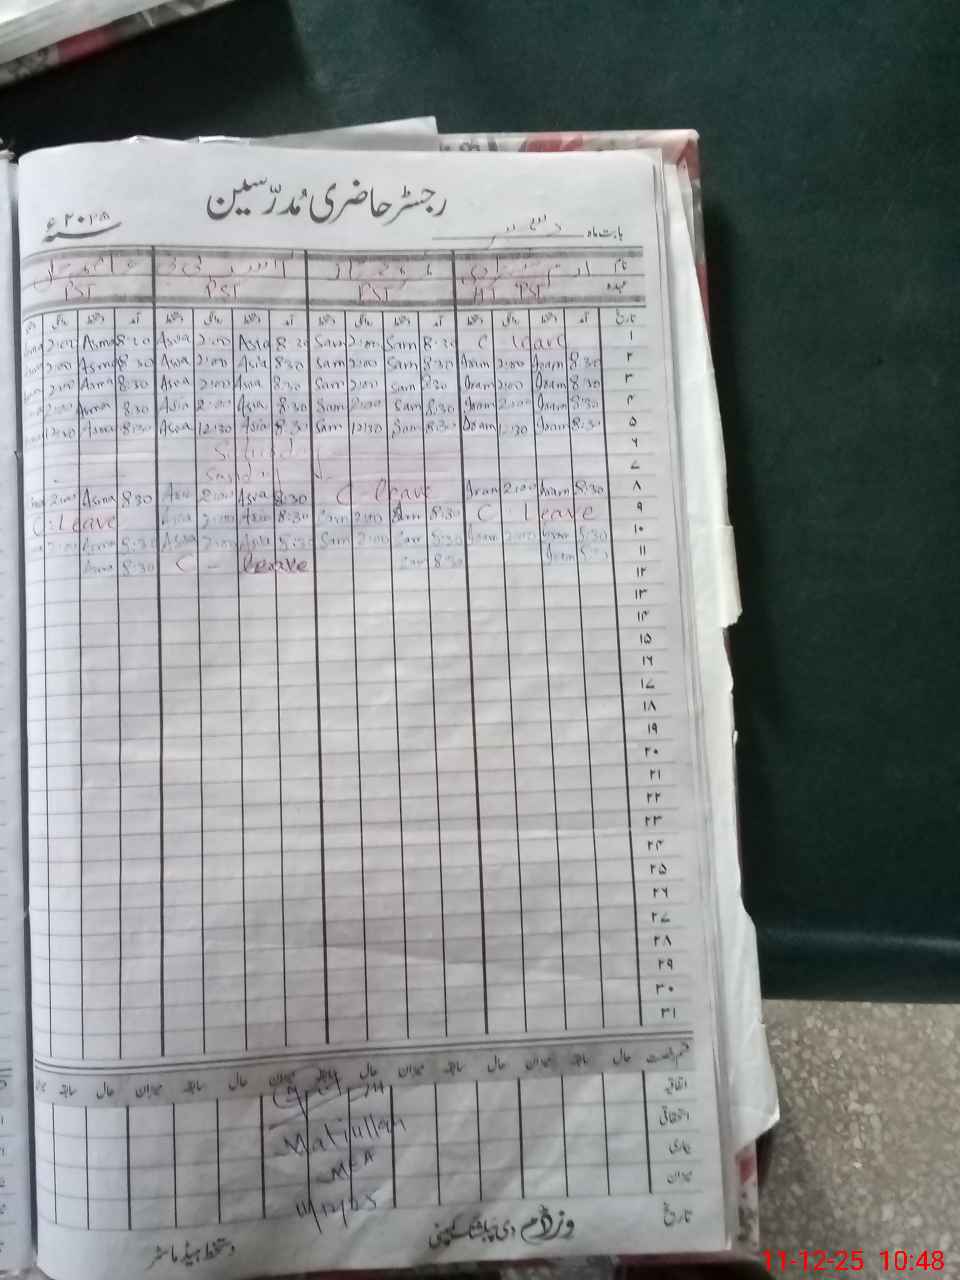 رجسٹر حاضری مُدرّسین
بابت ماہ دسمبر سنہ ۲۰۲۵ء
نام
عہدہ HT PST PST PST PST
تاریخ آمد دستخط روانگی دستخط آمد دستخط روانگی دستخط آمد دستخط روانگی دستخط آمد دستخط روانگی
۱ C leave 8:30 Sam 2:00 Sam 8:30 Asia 2:00 Asia 8:30 Asma 2:00
۲ 8:30 Iram 2:00 Iram 8:30 Sam 2:00 Sam 8:30 Asia 2:00 Asia 8:30 Asma 2:00
۳ 8:30 Iram 2:00 Iram 8:30 Sam 2:00 Sam 8:30 Asia 2:00 Asia 8:30 Asma 2:00
۴ 8:30 Iram 2:00 Iram 8:30 Sam 2:00 Sam 8:30 Asia 2:00 Asia 8:30 Asma 2:00
۵ 8:30 Iram 12:30 Iram 8:30 Sam 12:30 Sam 8:30 Asia 12:30 Asia 8:30 Asma 12:30
۶ Saturday
۷ Sunday
۸ 8:30 Iram 2:00 Iram C-leave 8:30 Asia 2:00 Asia 8:30 Asma 2:00
۹ C leave 8:30 Sam 2:00 Sam 8:30 Asia 2:00 Asia C-Leave
۱۰ 8:30 Iram 2:00 Iram 8:30 Sam 2:00 Sam 8:30 Asia 2:00 Asia 8:30 Asma 2:00
۱۱ 8:30 Iram 8:30 Sam C - leave 8:30 Asma
۱۲
۱۳
۱۴
۱۵
۱۶
۱۷
۱۸
۱۹
۲۰
۲۱
۲۲
۲۳
۲۴
۲۵
۲۶
۲۷
۲۸
۲۹
۳۰
۳۱
قسم رخصت حال سابقہ میزان حال سابقہ میزان حال سابقہ میزان حال سابقہ میزان
اتفاقیہ
استحقاقی
بیماری
میزان
تاریخ
Matiullah
MEA
11/12/25
وزڈم دی پبلشنگ کمپنی
دستخط ہیڈ ماسٹر
11-12-25 10:48